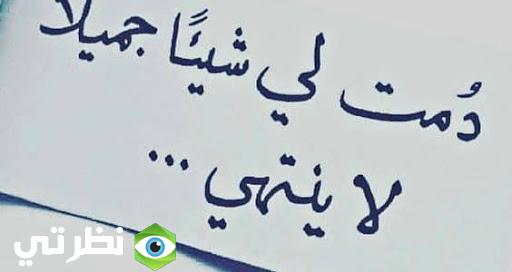 دُمت لي شيئًا جميلًا
لا ينتهي ...
نظرتي